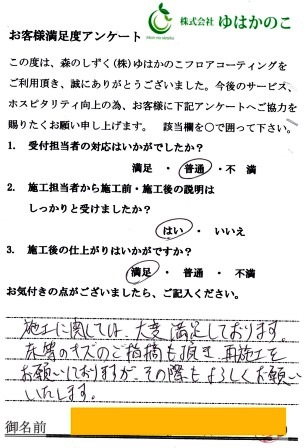 株式会社 ゆはかのこ
お客様満足度アンケート
この度は、森のしずく(株)ゆはかのこフロアコーティングを
ご利用頂き、誠にありがとうございました。今後のサービス、
ホスピタリティ向上の為、お客様に下記アンケートへご協力を
賜りたくお願い申し上げます。 該当欄を○で囲って下さい。
1. 受付担当者の対応はいかがでしたか?
満足 ・ 普通 ・ 不 満
2. 施工担当者から施工前・施工後の説明は
しっかりと受けましたか?
はい ・ いいえ
3. 施工後の仕上がりはいかがですか?
満足 ・ 普通 ・ 不 満
お気付きの点がございましたら、ご記入ください。
施工に関しては、大変満足しております。
床等のキズのご指摘も頂き、再施工を
お願いしておりますが、その際もよろしくお願い
いたします。
御名前